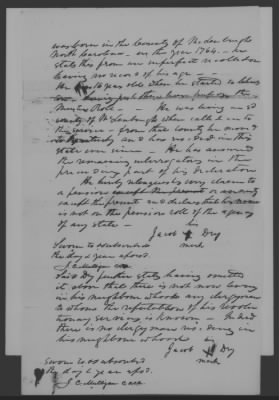 was born in the County of Mecklenburgh
North Carolina - in the year 1764 - he
states this from an imperfect recollection
having no record of his age -
He 16 years old when he started to
Muster Role He was living in
County of Mecklenburgh when called into
the service - from that county he moved
to Kentucky and has resided in this
state ever since - He has answered
the remaining interrogatories in the
preceeding part of his declaration
He hereby relinquishes every claim to
a pension or annuity
except the present and declares that his name
is not on the pension role of the agency
of any state -
his
Jacob X Dry
mark
Sworn to & subscribed
the day & year afosd.
J C McMillen
Said Dry further states having omitted
it above that there is not now living
in his neighbourhood any clergyman
to whom the reputation of his Revolu
tionary services is known -
there is no clergyman residing in
his neighbourhood
his
Jacob X Dry
mark
Sworn to & subscribed
the day & year afosd.